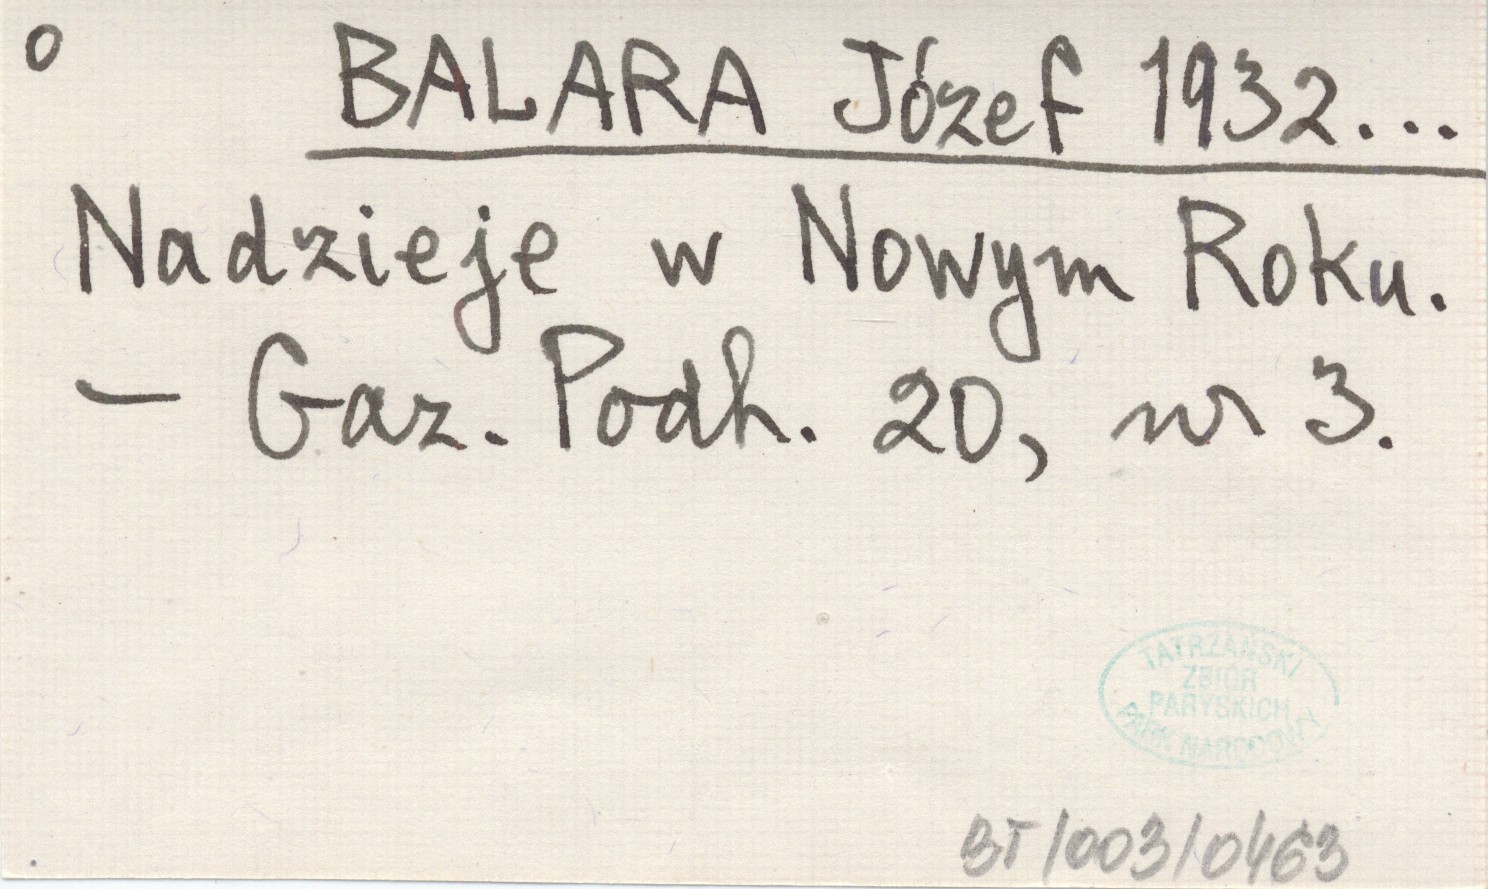 o BALARA Józef 1932...
Nadzieje w Nowym Roku.
— Gaz. Podh. 20, nr 3.
TATRZAŃSKI
ZBIÓR
PARYSKICH
PARK NARODOWY
BT/003/0463